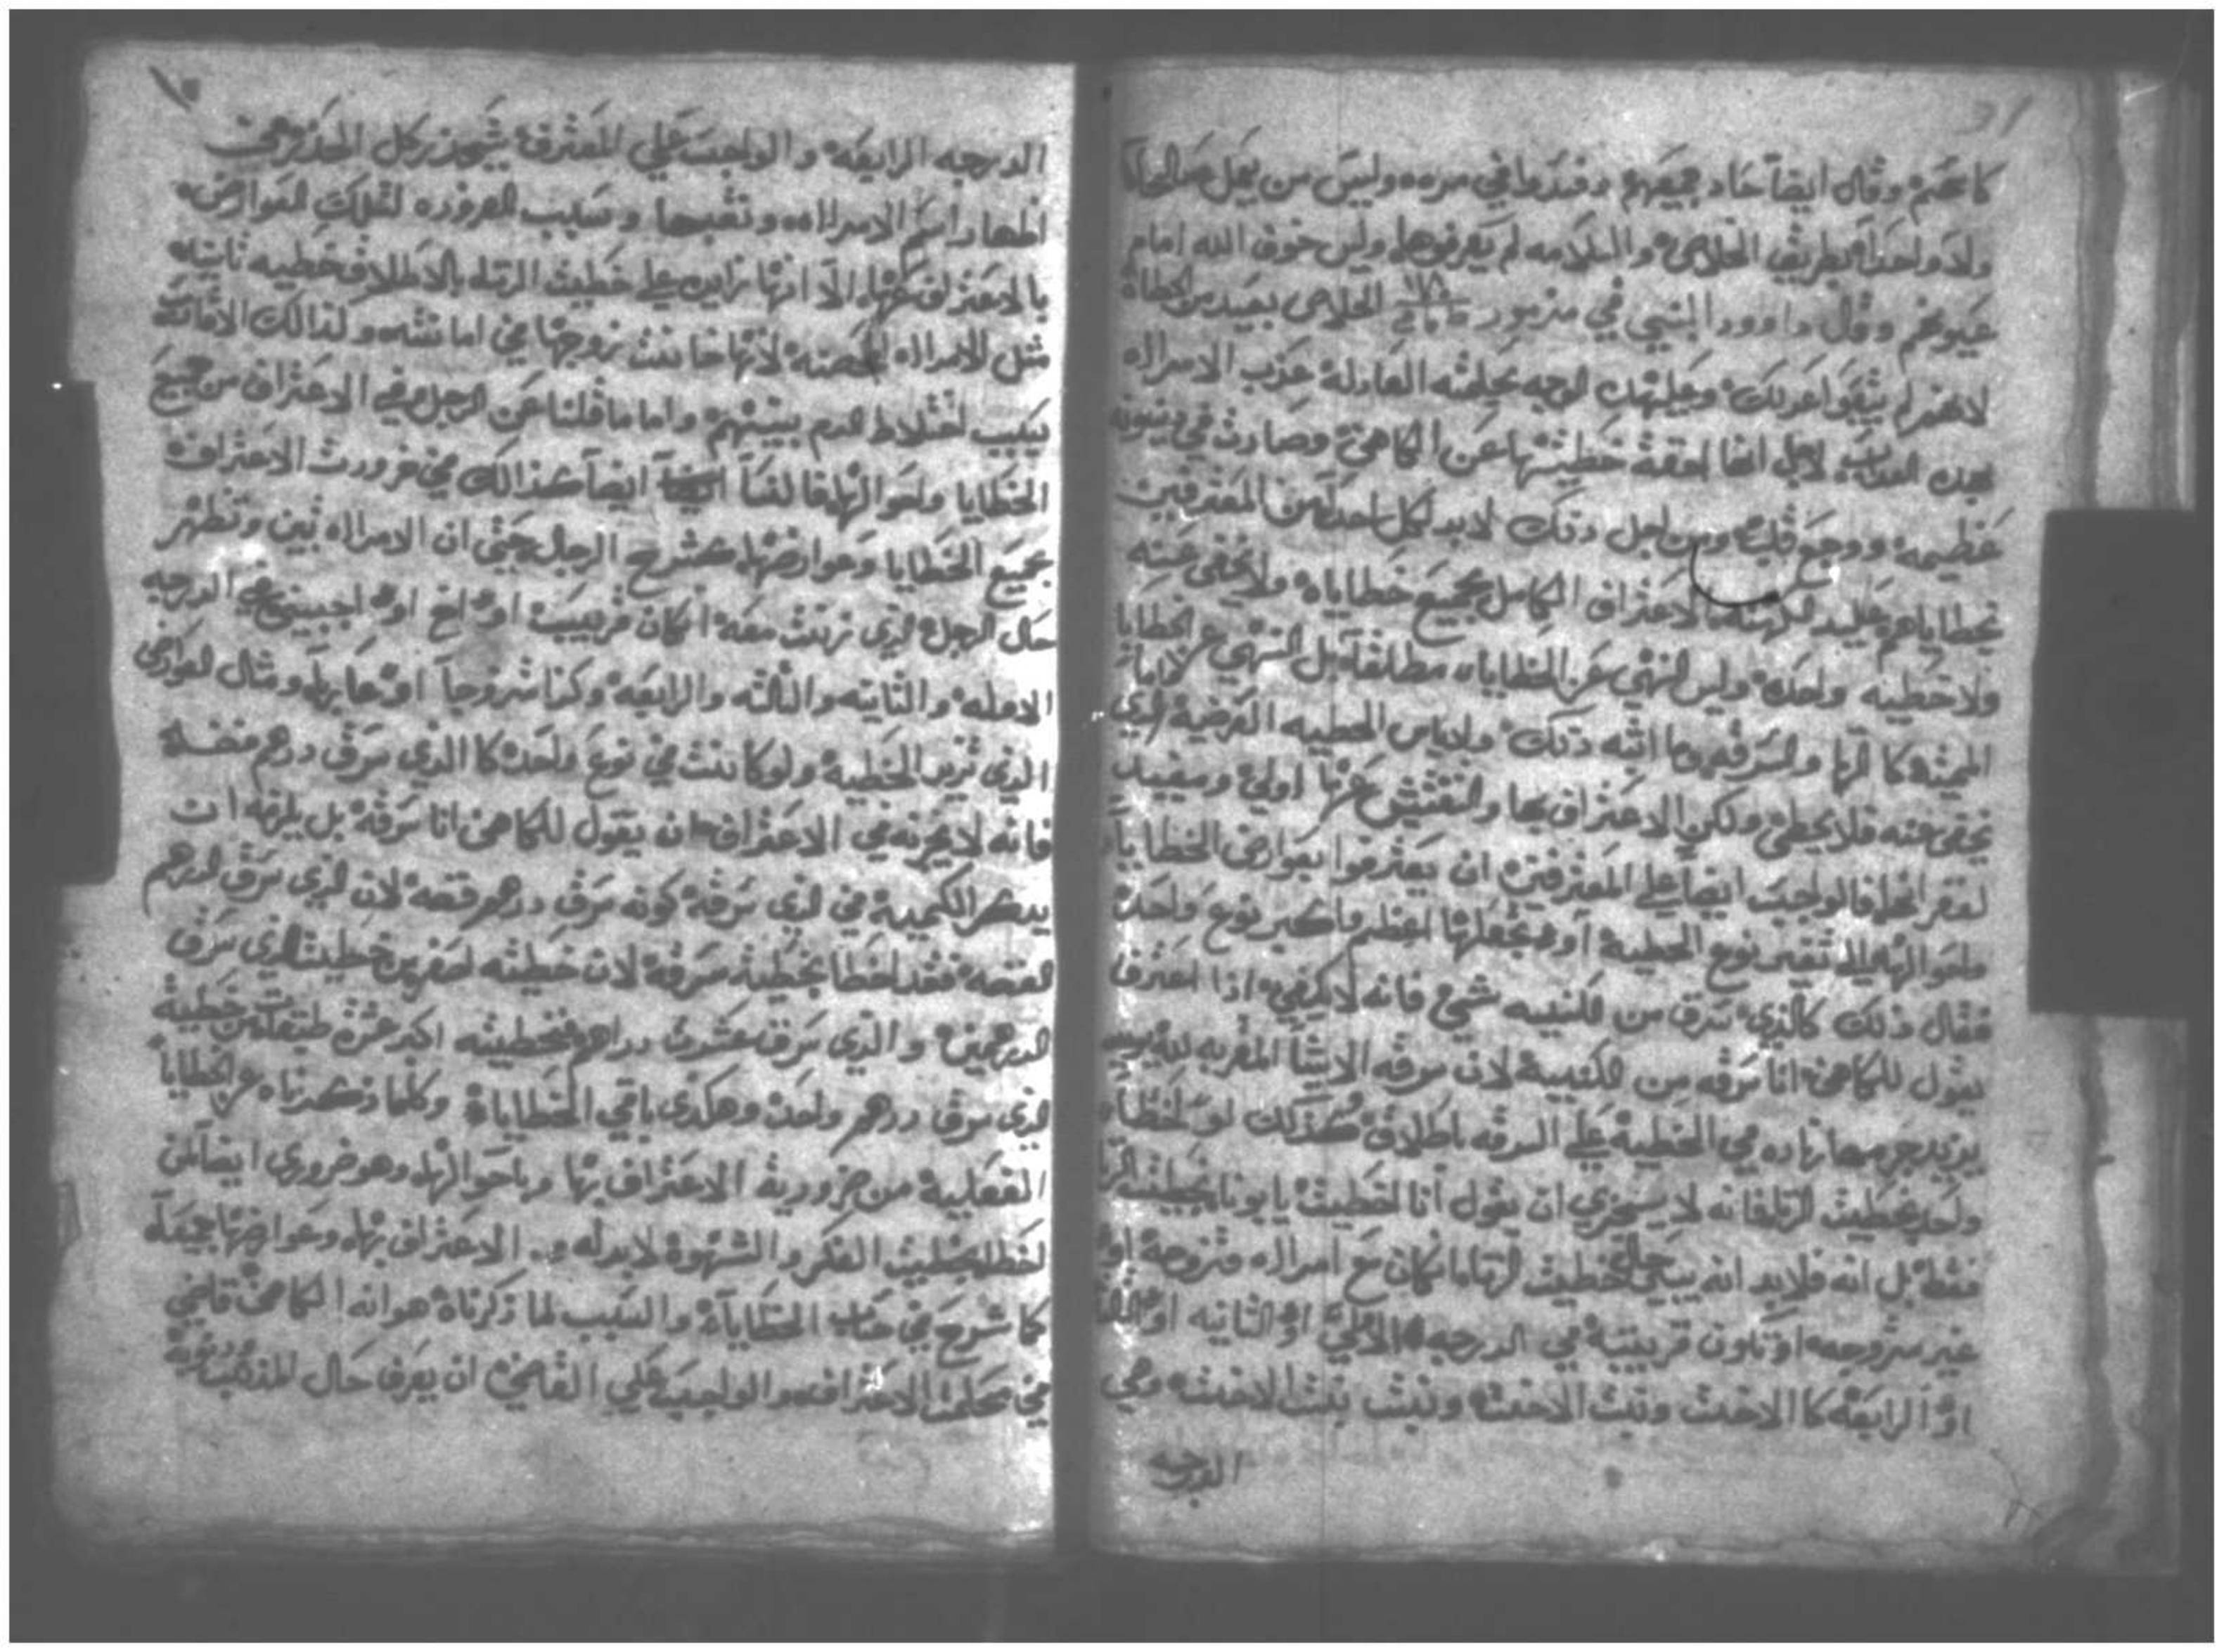 كاعتهم وقال ايضاً حاد جميعهم وفسدوا في مره وليس من يعمل صالحاً
ولا واحداً بطريق الخلاص والسلامه لم يعرفوها وليس خوف الله امام
عيونهم وقال داوود النبي في مزمور ١١٨ الخلاص بعيد من الخطاه
لانهم لم يتبعوا عدلك الوجه العادلة عذب الامراه
لاجل انها خطيتها عن الكاهن وصارت في دينونه
عظيمه ووجع قلب ومن اجل دتك لابد لكل احد من المعترفين
بخطاياهم عليه الاعتراف الكامل بجميع خطاياه ولا يخفي عنه
ولا خطيه واحده وليس النهي عن الخطاياه مطلقا بل النهي عن الخطايا
المميته كا الزنا والسرقه وما اشبه دتك الخطيه العرضية الذي
يخفي عنه فلا يخطي ولكن الاعتراف بها والتفتيش عنها اولي ومفيد
فالواجب ايضاً علي المعترفين ان يعترفوا بعوارض الخطاياه
واحوالها نوع الخطية او تجعلها اعظم واكبر نوع واحد
فقال ذلك كالذي سرق من الكنيسه شي فانه لا يكفي اذا اعترف
يقول للكاهن انا سرقه من الكنيسة لان سرقه الاشيا المقربه لله
يزيد جرمها زياده في الخطية علي السرقه باطلاق كذلك لو اخطا
واحد بخطيت الزنا فانه لا يستجزي ان يقول انا اخطيت يا بونا بخطيت الزنا
فقط بل انه فلا بد انه يبين حال خطيت الزنا ما ان كان مع امراه متزوجة او
غير متزوجه او تكون قريبة في الدرجه الاولي او الثانيه او الثالثه
او الرابعة كا الاخت وبنت الاخت وبنت بنت الاخت وهي
الدرجه
الدرجه الرابعه والواجب علي المعترف كل الحذر من
اظهار اسم الامراه وتقبحها وسبب الضروره لتلك العوارض
بالاعتراف الا انها زايده علي خطيت الزنا بالاطلاق خطيه ثانيه
مثل الامراه المحصنه لانها خانت زوجها في امانته وكذالك الاقارب
بسبب اختلاط الدم بينهم واما ما قلنا عن الرجل في الاعتراف من جميع
الخطايا واحوالها ايضاً كذالك في ضرورت الاعتراف
بجميع الخطايا وعوارضها كشرح الرجل حتي ان الامراه تبين وتظهر
حال الرجل الذي زنت معه ان كان قريب او اخ او اجنبي في الدرجه
الاوله والثانيه والثالثه والرابعه وكذا متزوجاً او عازباً ومثال العوارض
الذي تزيد الخطية ولو كانت في نوع واحد كا الذي سرق درهم فضه
فانه لا يجزيه في الاعتراف ان يقول للكاهن انا سرقه بل يلزمه ان
يدكر الكمية في الذي سرقه كونه سرق درهم فضه لان الذي سرق الدرهم
الفضه فقد اخطا بخطية سرقه لان خطيته اصغر من خطيت الذي سرق
الدرهمين والذي سرق عشرت دراهم فخطيته اكبر عشرة طبقات من خطية
الذي سرق درهم واحد وهكذي باقي الخطاياه وكلما ذكرناه عن الخطايا
الفعلية من ضرورية الاعتراف بها وباحوالها وهو ضروري ايضاً لمن
اخطا بخطيت الفكر والشهوة لابد له من الاعتراف بها وعوارضها جميعاً
كما شرح في الخطاياه والسبب لما ذكرناه هو انه الكاهن قاضي
في محكمت الاعتراف والواجب علي القاضي ان يعرف حال المذنب